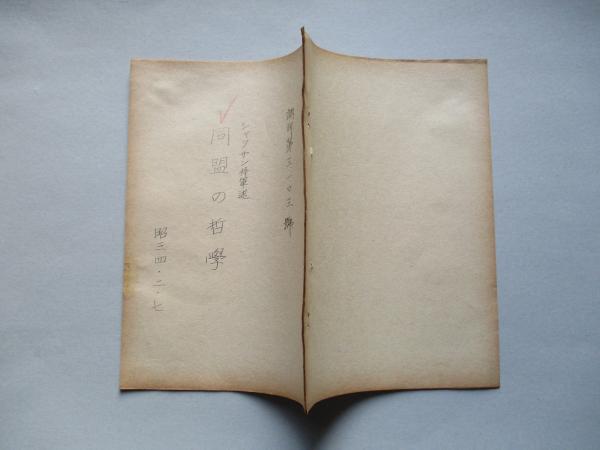 調別第三一〇三號
シャッサン将軍述
同盟の哲學
昭三四・二・七